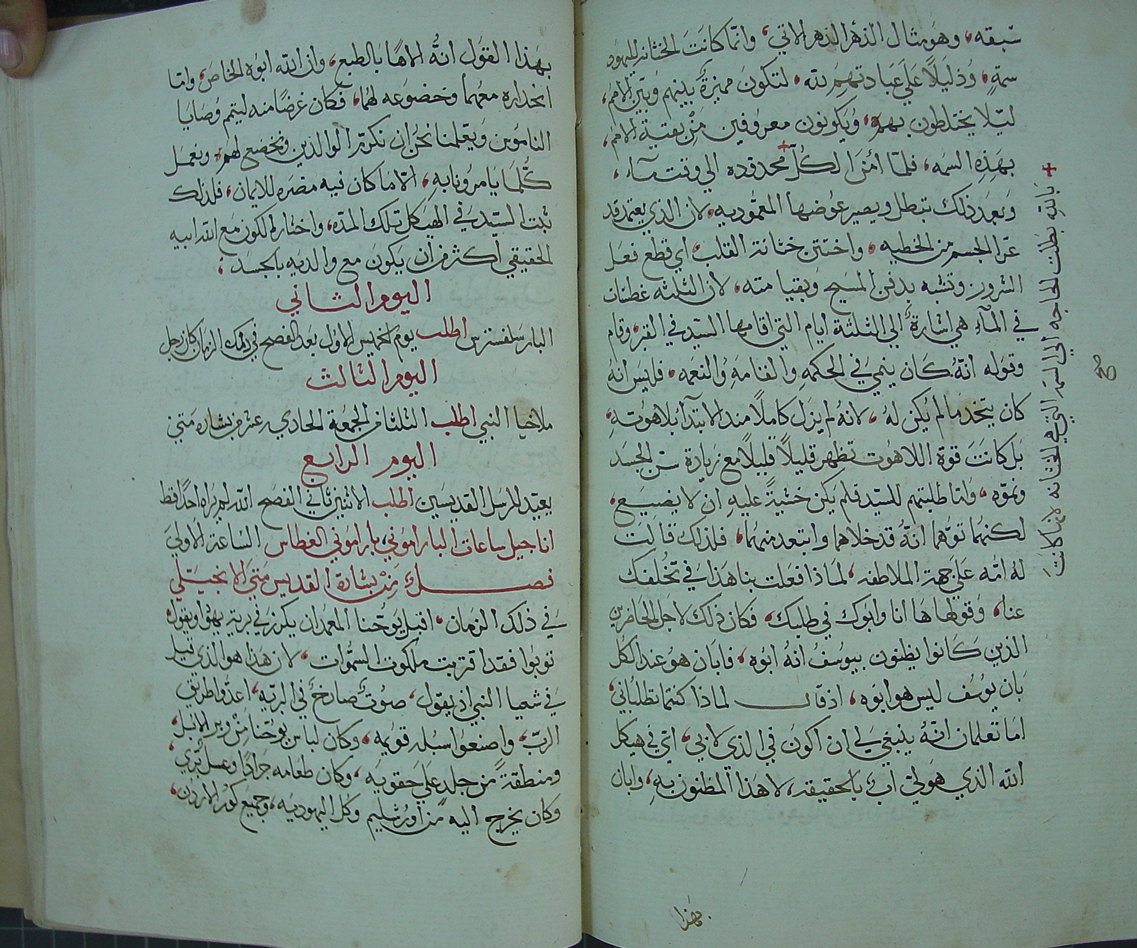 سبقه، وهو مثال الدهر الاتي، وانما كانت الختانه لليهود
سمة، ودليلاً على عبادتهم لله، لتكون مميزة بينهم وبين الامم
ليلا يختلطون بهم، ويكونون معروفين من بقية الامم
بهذه السمه، فلما امر الكل محدوده الي وقت
وبعد ذلك تبطل ويصير عوضها المعموديه، لان الذي يعتمد قد
عرّا الجسم من الخطيه، واختتن ختانة القلب اي قطع فعل
الشرور وتشبه بدفن المسيح وبقيامته، لان الثلثه غطسات
في الماء هي اشارة الي الثلثة ايام التي اقامها السيد في القبر وقام
وقوله انه كان ينمي في الحكمه والقامه والنعمه، فليس انه
كان يتخد ما لم يكن له، لانه لم يزل كاملاً مند الابتدا بلاهوته
بل كانت قوة اللاهوت تظهر قليلاً قليلاً مع زيارة سن الجسد
ونموه، واما طلبتهم للسيد فلم يكن خشيةً عليه ان لا يضيع،
لكنهما توهما انه قد خلاهما وابتعد منهما، فلذلك قالت
له امه على جهة الملاطفه، لماذا فعلت بنا هذا في تخلفك
عنا، وقولها ها انا وابوك في طلبك، فكان ذلك لاجل الحاضرين
الذين كانوا يظنون بيوسف انه ابوه، فابان هو عند الكل
بان يوسف ليس هو ابوه، اذ قال لماذا كنتما تطلباني
اما تعلمان انه ينبغي لي ان اكون في الذي لابي، اي في هيكل
الله الذي هو لي اب بالحقيقه، لا هذا المظنون به، وابان
بهذا
بطلت الحاجه الي الستر التي هي الختانه لانها كانت
صح
بهذا القول انه الاهًا بالطبع، وان الله ابوه الخاص، واما
انحداره معهما وخضوعه لهما، فكان غرضًا منه ليتم وصايا
الناموس ويعلمنا نحن ان نكرم الوالدين ونخضع لهم، ونعمل
كُلما يامرونا به، الا ما كان فيه مضره للايمان، فلذلك
ثبت السيد في الهيكل تلك المده، واختار الكون مع الله ابيه
الحقيقي اكثر من ان يكون مع والديه بالجسد:
اليوم الثاني
البار سلفسترس اطلب يوم الخميس الاول بعد الفصح في ذلك الزمان كان رجل
اليوم الثالث
ملاخيا النبي اطلب الثلثا من الجمعة الحادي عشر من بشاره متي
اليوم الرابع
بعيد للرسل القديسين اطلب الاثنين ثاني الفصح الله لم يراه احد قط
اناجيل ساعات الباراموني باراموني الغطاس الساعة الاولي
فصل من بشارة القديس متي الانجيلي
في ذلك الزمان، اقبل يوحنا المعمدان يكرز في برية يهوذا ويقول
توبوا فقد اقتربت ملكوت السموات، لان هذا هو الذي قيل
في شعيا النبي اذ يقول، صوت صارخ في البريه، اعدوا طريق
الرب، واصنعوا سبله قويمه، وكان لباس يوحنا من وبر الابل،
ومنطقة من جلد على حقويه، وكان طعامه جرادًا وعسل بري،
وكان يخرج اليه من اورشليم وكل اليهوديه، وجميع كور الاردن،